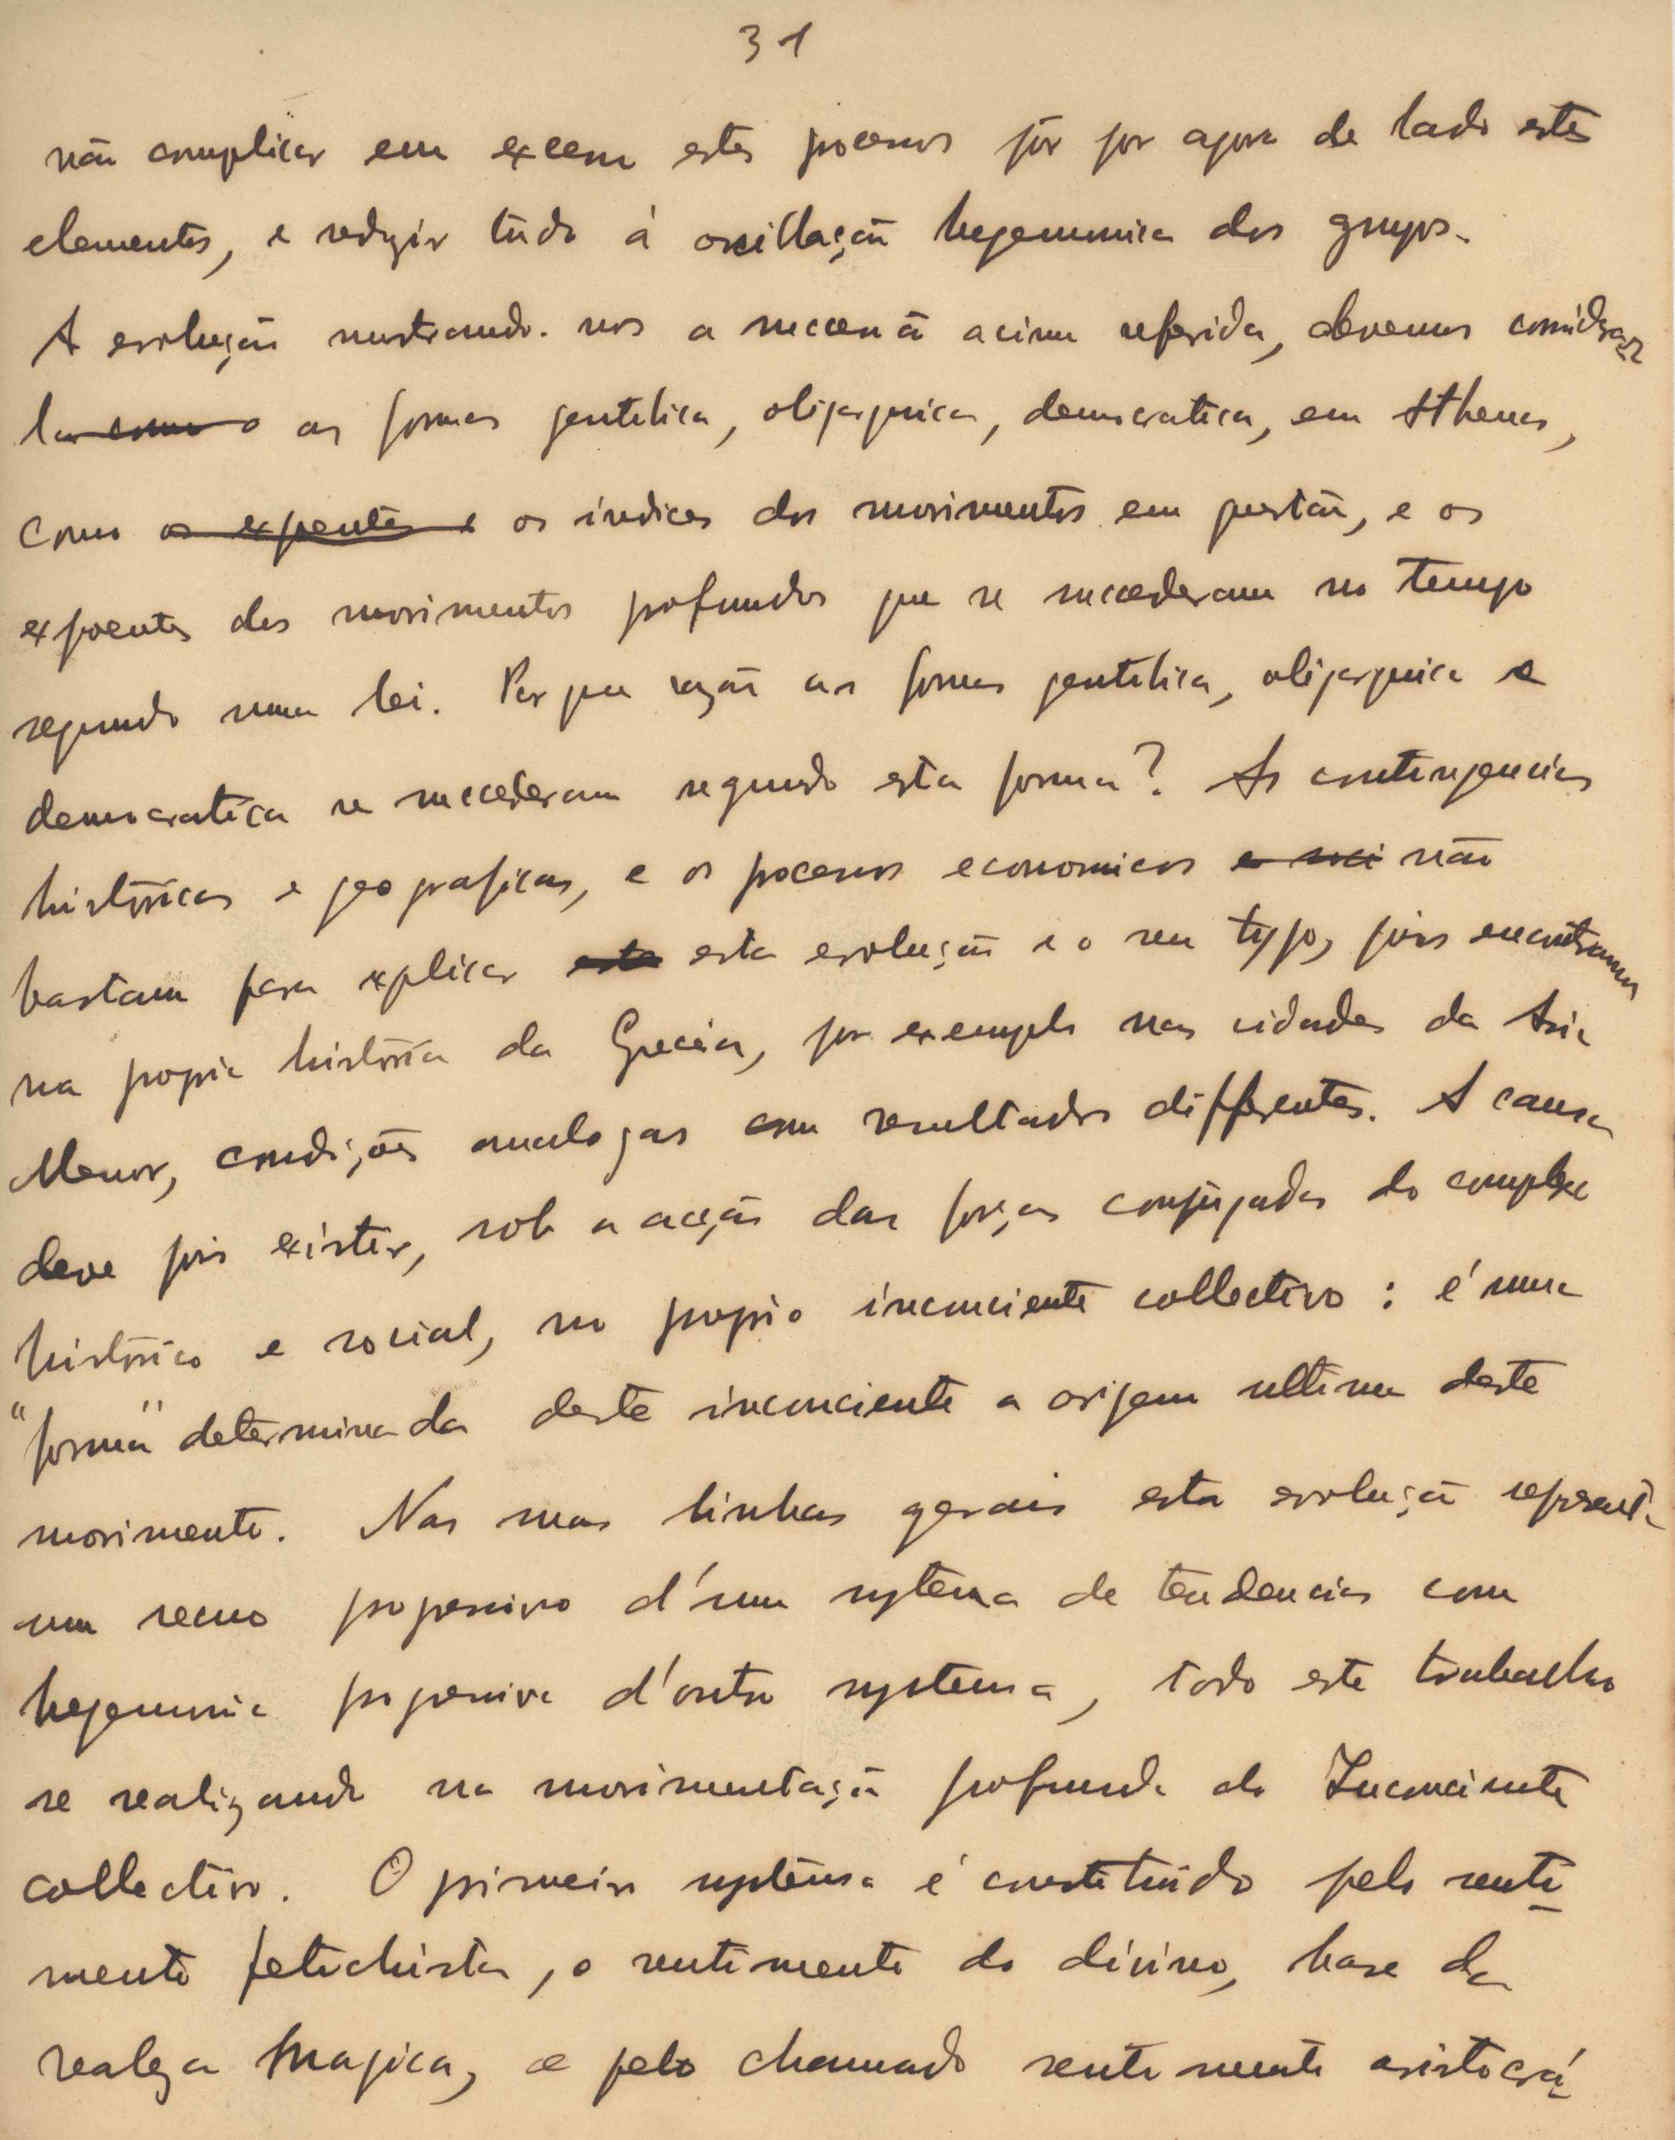 31
não complicar em excesso estes processos pôr por agora de lado estes
elementos, e reduzir tudo á oscillação hegemonica dos grupos.
A evolução mostrando-nos a successão acima referida, devemos considerar
la como o as formas gentilica, oligarquica, democratica, em Athenas,
como os expoentes e os indices dos movimentos em questão, e os
expoentes dos movimentos profundos que se succederam no tempo
segundo uma lei. Por que razão as formas gentilica, oligarquica e
democratica se succederam segundo esta forma? As contingencias
históricas e geograficas, e os processos economicos e soci não
bastam para explicar esta esta evolução e o seu typo, pois encontramos
na propria história da Grecia, por exemplo nas cidades da Asia
Menor, condições analogas com resultados differentes. A causa
deve pois existir, sob a acção das forças conjugadas do complexo
histórico e social, no proprio inconciente collectivo: é numa
"forma" determinada deste inconciente a origem ultima deste
movimento. Nas suas linhas gerais esta evolução representa
um recuo progressivo d'um systema de tendencias com
hegemonia progressiva d'outro systema, todo este trabalho
se realizando na movimentação profunda do Inconciente
collectivo. O primeiro systema é constituido pelo senti-
mento fetichista, o sentimento do divino, base da
realeza magica, e pelo chamado sentimento aristocrá-